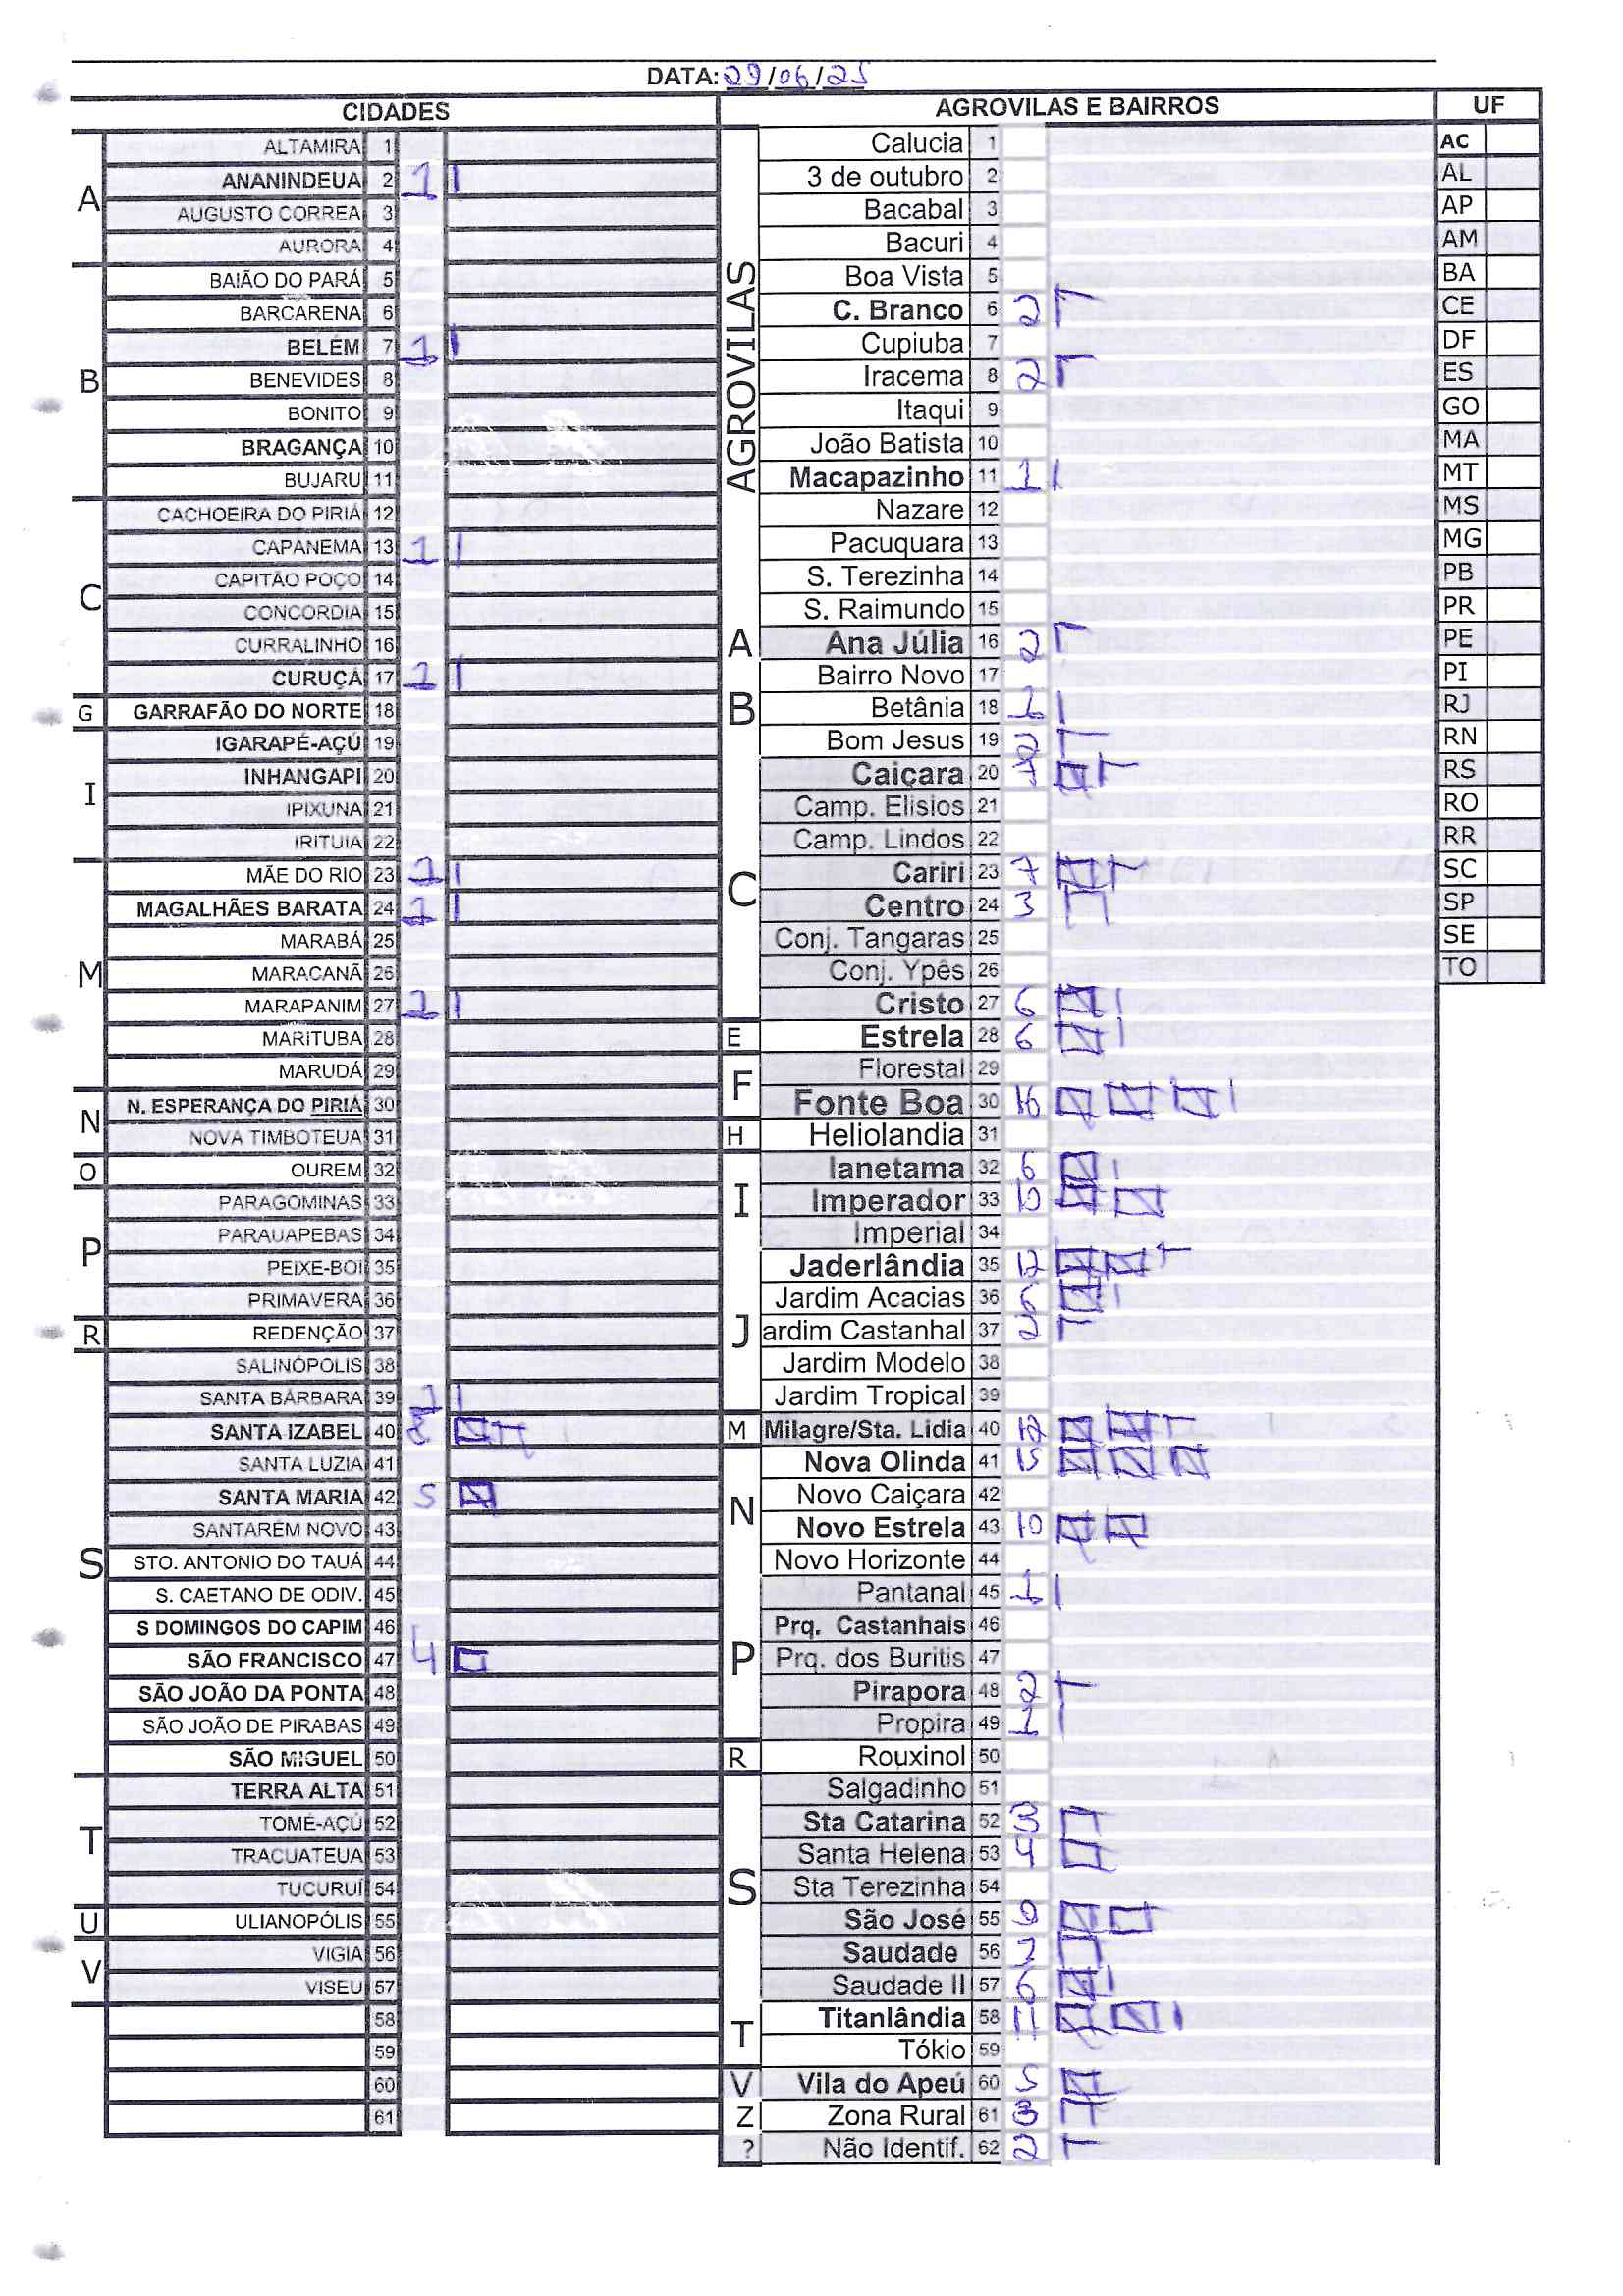 DATA: 29/06/25
CIDADES
A
ALTAMIRA 1
ANANINDEUA 2 1
AUGUSTO CORREA 3
AURORA 4
B
BAIÃO DO PARÁ 5
BARCARENA 6
BELÉM 7 1
BENEVIDES 8
BONITO 9
BRAGANÇA 10
BUJARU 11
C
CACHOEIRA DO PIRIÁ 12
CAPANEMA 13 1
CAPITÃO POÇO 14
CONCORDIA 15
CURRALINHO 16
CURUÇÁ 17 1
G
GARRAFÃO DO NORTE 18
I
IGARAPÉ-AÇÚ 19
INHANGAPI 20
IPIXUNA 21
IRITUIA 22
M
MÃE DO RIO 23 1
MAGALHÃES BARATA 24 1
MARABÁ 25
MARACANÃ 26
MARAPANIM 27 1
MARITUBA 28
MARUDÁ 29
N
N. ESPERANÇA DO PIRIÁ 30
NOVA TIMBOTEUA 31
O
OUREM 32
P
PARAGOMINAS 33
PARAUAPEBAS 34
PEIXE-BOI 35
PRIMAVERA 36
R
REDENÇÃO 37
S
SALINÓPOLIS 38
SANTA BÁRBARA 39 1
SANTA IZABEL 40 8
SANTA LUZIA 41
SANTA MARIA 42 5
SANTARÉM NOVO 43
STO. ANTONIO DO TAUÁ 44
S. CAETANO DE ODIV. 45
S DOMINGOS DO CAPIM 46
SÃO FRANCISCO 47 4
SÃO JOÃO DA PONTA 48
SÃO JOÃO DE PIRABAS 49
SÃO MIGUEL 50
T
TERRA ALTA 51
TOMÉ-AÇÚ 52
TRACUATEUA 53
TUCURUÍ 54
U
ULIANOPÓLIS 55
V
VIGIA 56
VISEU 57
58
59
60
61
AGROVILAS E BAIRROS
AGROVILAS
Calucia 1
3 de outubro 2
Bacabal 3
Bacuri 4
Boa Vista 5
C. Branco 6 2
Cupiuba 7
Iracema 8 2
Itaqui 9
João Batista 10
Macapazinho 11 1
Nazare 12
Pacuquara 13
S. Terezinha 14
S. Raimundo 15
A
Ana Júlia 16 2
B
Bairro Novo 17
Betânia 18 1
Bom Jesus 19 2
C
Caiçara 20 7
Camp. Elisios 21
Camp. Lindos 22
Cariri 23 7
Centro 24 3
Conj. Tangaras 25
Conj. Ypês 26
Cristo 27 6
E
Estrela 28 6
F
Florestal 29
Fonte Boa 30 16
H
Heliolandia 31
I
Ianetama 32 6
Imperador 33 10
Imperial 34
J
Jaderlândia 35 12
Jardim Acacias 36 6
ardim Castanhal 37 2
Jardim Modelo 38
Jardim Tropical 39
M
Milagre/Sta. Lidia 40 12
N
Nova Olinda 41 15
Novo Caiçara 42
Novo Estrela 43 10
Novo Horizonte 44
P
Pantanal 45 1
Prq. Castanhais 46
Prq. dos Buritis 47
Pirapora 48 2
Propira 49 1
R
Rouxinol 50
S
Salgadinho 51
Sta Catarina 52 3
Santa Helena 53 4
Sta Terezinha 54
São José 55 9
Saudade 56 3
Saudade II 57 6
T
Titanlândia 58 11
Tókio 59
V
Vila do Apeú 60 5
Z
Zona Rural 61 3
?
Não Identif. 62 2
UF
AC
AL
AP
AM
BA
CE
DF
ES
GO
MA
MT
MS
MG
PB
PR
PE
PI
RJ
RN
RS
RO
RR
SC
SP
SE
TO